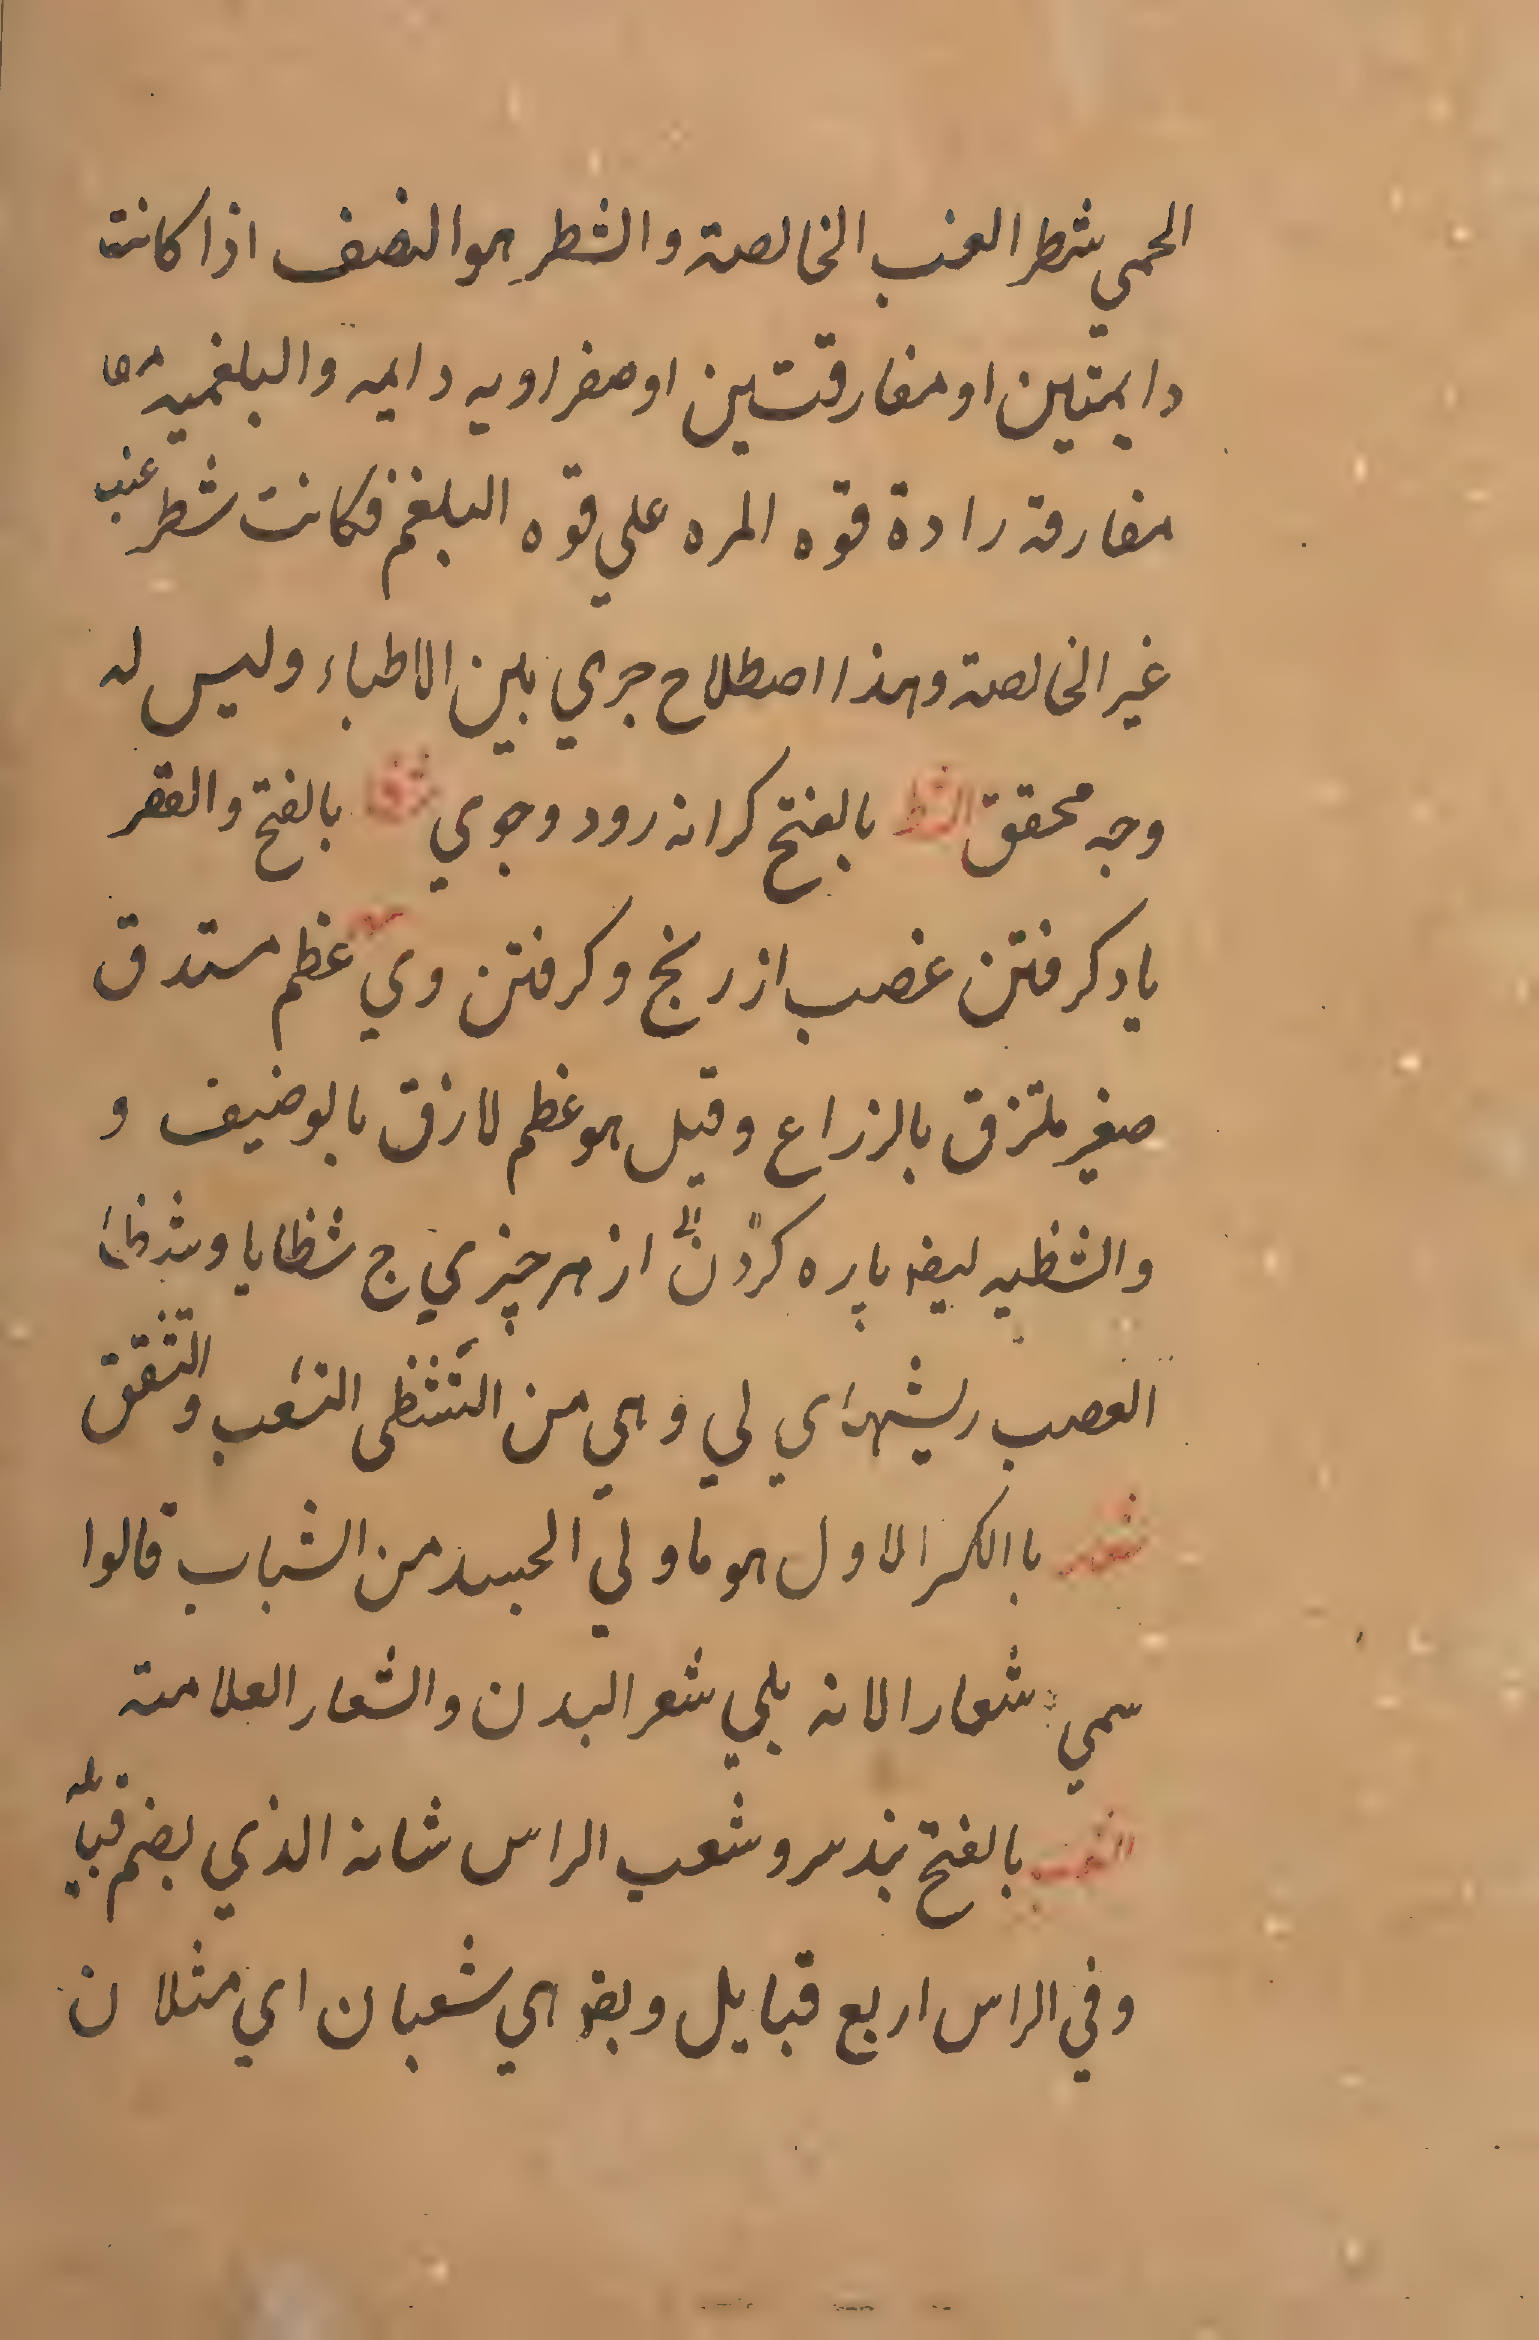 الحمي شطر الغب الخالصة والشطر هو النصف اذا كانت
دايمتين او مفارقتين او صفراويه دايمه والبلغميه
مفارقة رادة قوه المره علي قوه البلغم فكانت شطر غب
غير الخالصة وهذا اصطلاح جري بين الاطباء وليس له
وجه محقق الشط بالفتح كرانه رود وجوي بالفتح والقصر
يا دكرفتن غصب از رنج وكرفتن وي عظم مستدق
صغير ملتزق بالزراع وقيل هو عظم لازق بالوضيف و
والشظيه ليفه پاره كردن از هر چيزي ج شظايا
العصب ريشهاي لي وهي من التشظى التشعب والتفقق
باالكسر الاول هو ما ولي الجسد من الشباب قالوا
سمي شعارا لانه يلي شعر البدن والشعار العلامة
الشعب بالفتح بند سر وشعب الراس شانه الذي يضم قبايله
وفي الراس اربع قبايل وبعض هي شعبان اي مثلان